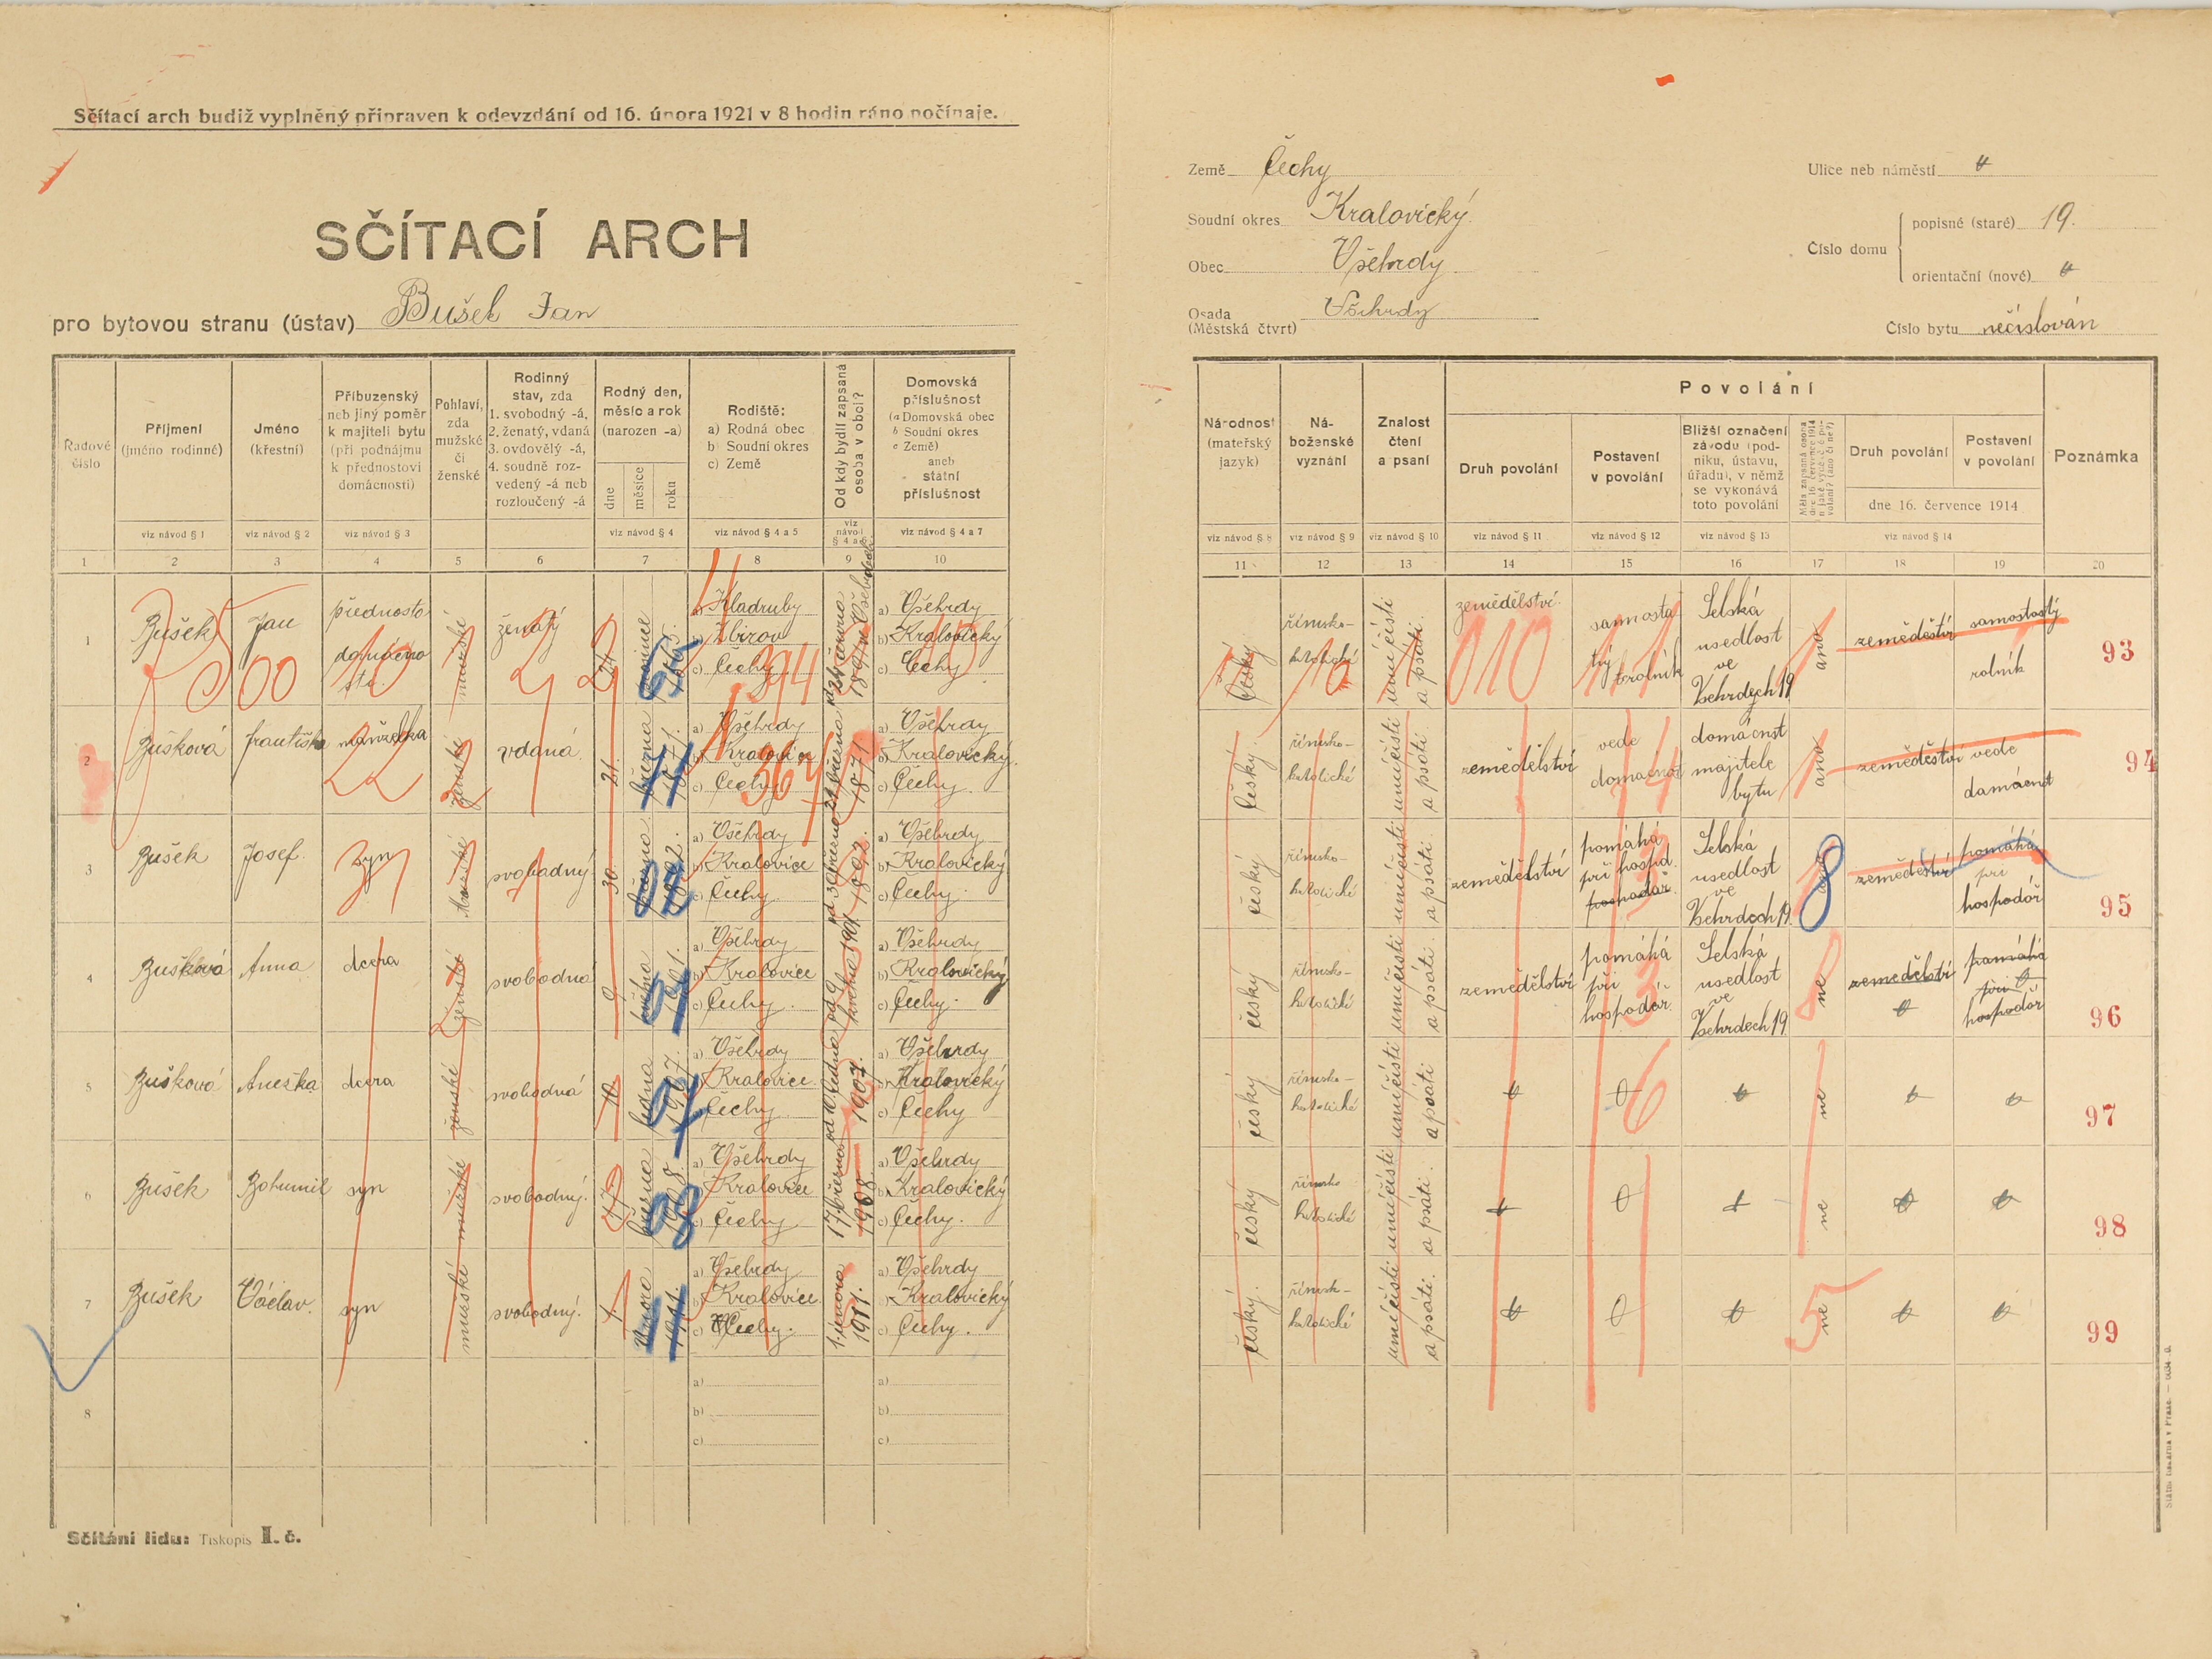 Sčítací arch budiž vyplněný připraven k odevzdání od 16. února 1921 v 8 hodin ráno počínaje.
SČÍTACÍ ARCH
pro bytovou stranu (ústav) Bušek Jan
Země Čechy
Soudní okres Kralovický
Obec Všehrdy
Osada (Městská čtvrt) Všehrdy
Ulice neb náměstí
Číslo domu
popisné (staré) 19.
orientační (nové)
Číslo bytu nečíslován
Řadové číslo
Příjmení (jméno rodinné)
Jméno (křestní)
Příbuzenský neb jiný poměr k majiteli bytu (při podnájmu k přednostovi domácnosti)
Pohlaví, zda mužské či ženské
Rodinný stav, zda
1. svobodný -á,
2. ženatý, vdaná
3. ovdovělý -á,
4. soudně rozvedený -á neb rozloučený -á
Rodný den, měsíc a rok (narozen -a)
dne
měsíce
roku
Rodiště:
a) Rodná obec
b) Soudní okres
c) Země
Od kdy bydlí zapsaná osoba v obci?
Domovská příslušnost
(a Domovská obec
b Soudní okres
c Země)
aneb státní příslušnost
viz návod § 1
viz návod § 2
viz návod § 3
viz návod § 4
viz návod § 4 a 5
viz návod § 4 a 7
1 2 3 4 5 6 7 8 9 10
Národnost (mateřský jazyk)
Náboženské vyznání
Znalost čtení a psaní
Povolání
Druh povolání
Postavení v povolání
Bližší označení závodu (podniku, ústavu, úřadu), v němž se vykonává toto povolání
Druh povolání
Postavení v povolání
dne 16. července 1914
Poznámka
viz návod § 8
viz návod § 9
viz návod § 10
viz návod § 11
viz návod § 12
viz návod § 13
viz návod § 14
11 12 13 14 15 16 17 18 19 20
1 Bušek Jan přednosta mužské ženatý 24
a) Kladruby
b) Zbirov
c) Čechy
a) Všehrdy
b) Kralovický
c) Čechy
český římsko- katolické umí čísti a psáti
zemědělství samostatný rolník
Selská usedlost ve Všehrdech 19
ano zemědělství samostatný rolník 93
2 Bušková Františka manželka ženské vdaná 21. března 1871.
a) Všehrdy
b) Kralovice
c) Čechy
21 března 1871
a) Všehrdy
b) Kralovický
c) Čechy.
český římsko- katolické umí čísti a psáti
zemědělství vede domácnost
domácnost majitele bytu
ano zemědělství vede domácnost 94
3 Bušek Josef. syn mužské svobodný 30. března 1892.
a) Všehrdy
b) Kralovice
c) Čechy
od 30 března 1892.
a) Všehrdy
b) Kralovický
c) Čechy.
český římsko- katolické umí čísti a psáti.
zemědělství pomáhá při hospod. hospodář.
Selská usedlost ve Všehrdech 19
zemědělství pomáhá při hospodář 95
4 Bušková Anna dcera ženské svobodná 9 května 1901.
a) Všehrdy
b) Kralovice
c) Čechy.
od 9 května 1901.
a) Všehrdy
b) Kralovický
c) Čechy.
český římsko- katolické umí čísti a psáti.
zemědělství pomáhá při hospodář.
Selská usedlost ve Všehrdech 19
ne zemědělství pomáhá při hospodář 96
5 Bušková Anežka dcera ženské svobodná 10 ledna 1907.
a) Všehrdy
b) Kralovice
c) Čechy
od 10 ledna 1907.
a) Všehrdy
b) Kralovický
c) Čechy
český římsko- katolické umí čísti a psáti
0 6
ne 97
6 Bušek Bohumil syn mužské svobodný. 17 března 1908.
a) Všehrdy
b) Kralovice
c) Čechy
17 března 1908.
a) Všehrdy
b) Kralovický
c) Čechy.
český římsko katolické umí čísti a psáti.
0
ne 98
7 Bušek Václav. syn mužské svobodný. 1. února 1911.
a) Všehrdy
b) Kralovice
c) Čechy.
1. února 1911.
a) Všehrdy
b) Kralovický
c) Čechy.
český. římsk- katolické umí čísti a psáti.
0
ne 5 99
8
a)
b)
c)
a)
b)
c)
Sčítání lidu: Tiskopis I. č.